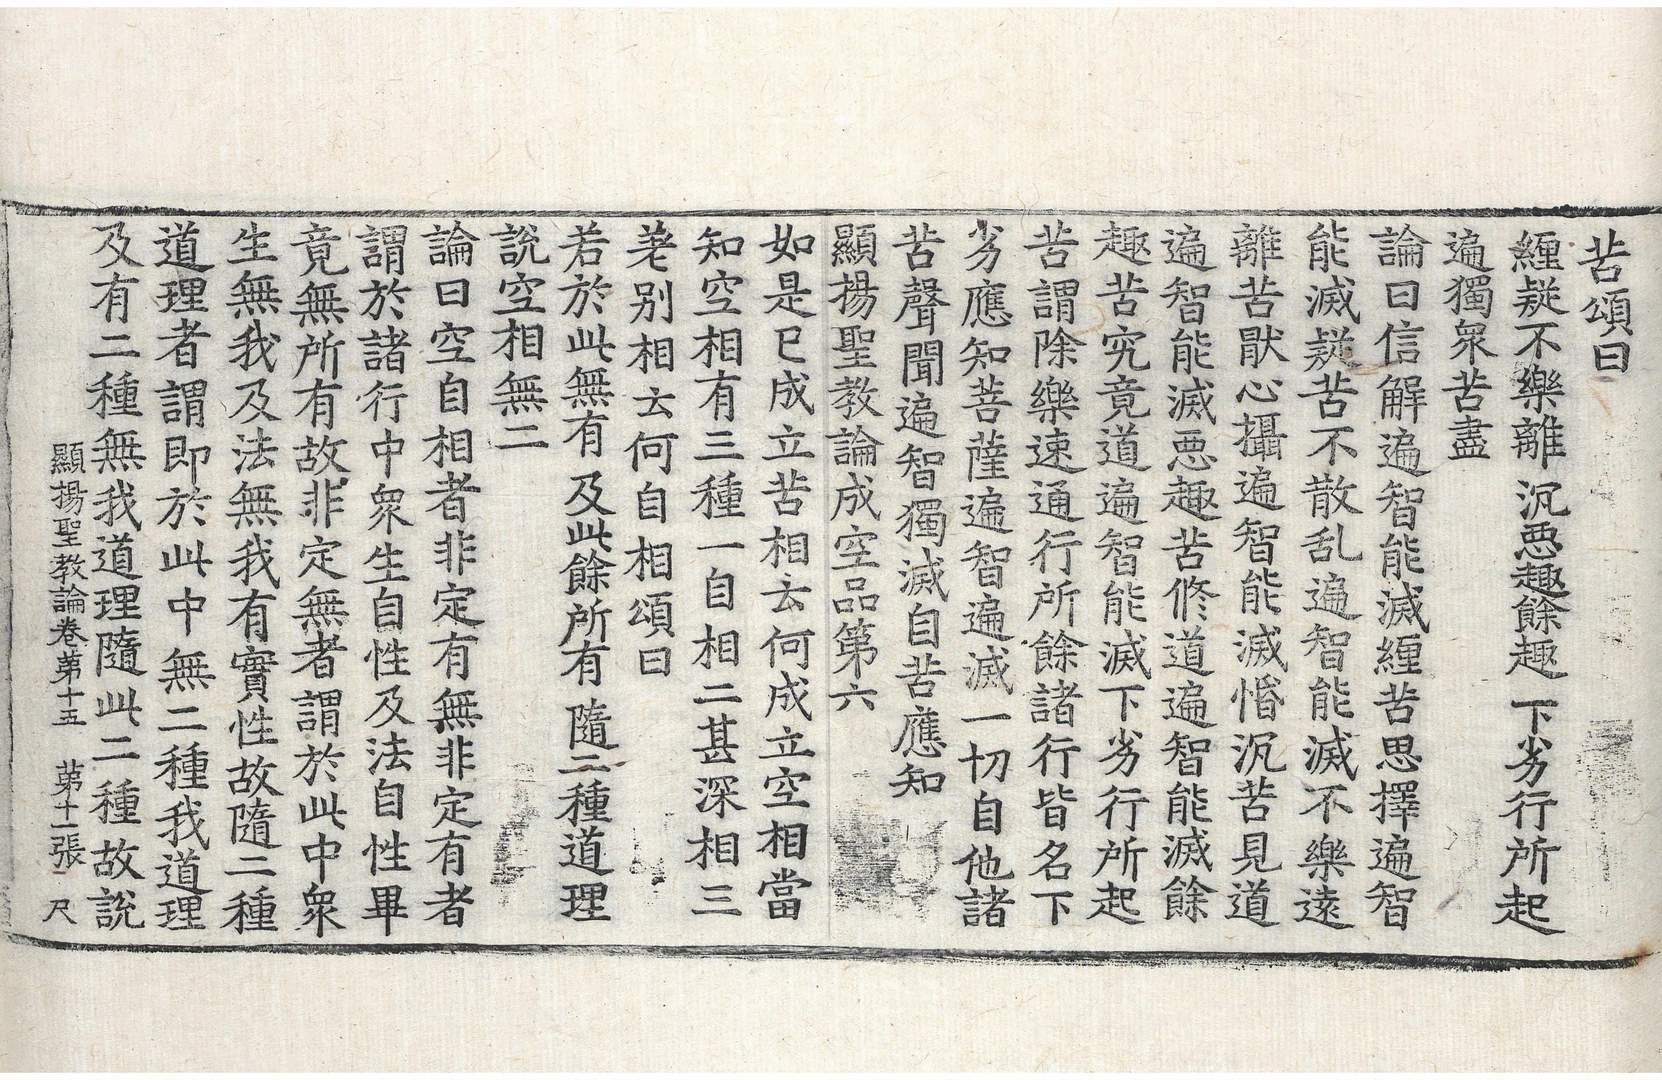 苦頌曰
纏疑不樂離 沉惡趣餘趣 下劣行所起
遍獨衆苦盡
論曰信解遍智能滅纏苦思擇遍智
能滅疑苦不散乱遍智能滅不樂遠
離苦猒心攝遍智能滅惛沉苦見道
遍智能滅惡趣苦修道遍智能滅餘
趣苦究竟道遍智能滅下劣行所起
苦謂除樂速通行所餘諸行皆名下
劣應知菩薩遍智遍滅一切自他諸
苦聲聞遍智獨滅自苦應知
顯揚聖教論成空品第六
如是已成立苦相云何成立空相當
知空相有三種一自相二甚深相三
差别相云何自相頌曰
若於此無有 及此餘所有 隨二種道理
說空相無二
論曰空自相者非定有無非定有者
謂於諸行中衆生自性及法自性畢
竟無所有故非定無者謂於此中衆
生無我及法無我有實性故隨二種
道理者謂即於此中無二種我道理
及有二種無我道理隨此二種故說
顯揚聖教論卷第十五 第十一張 尺